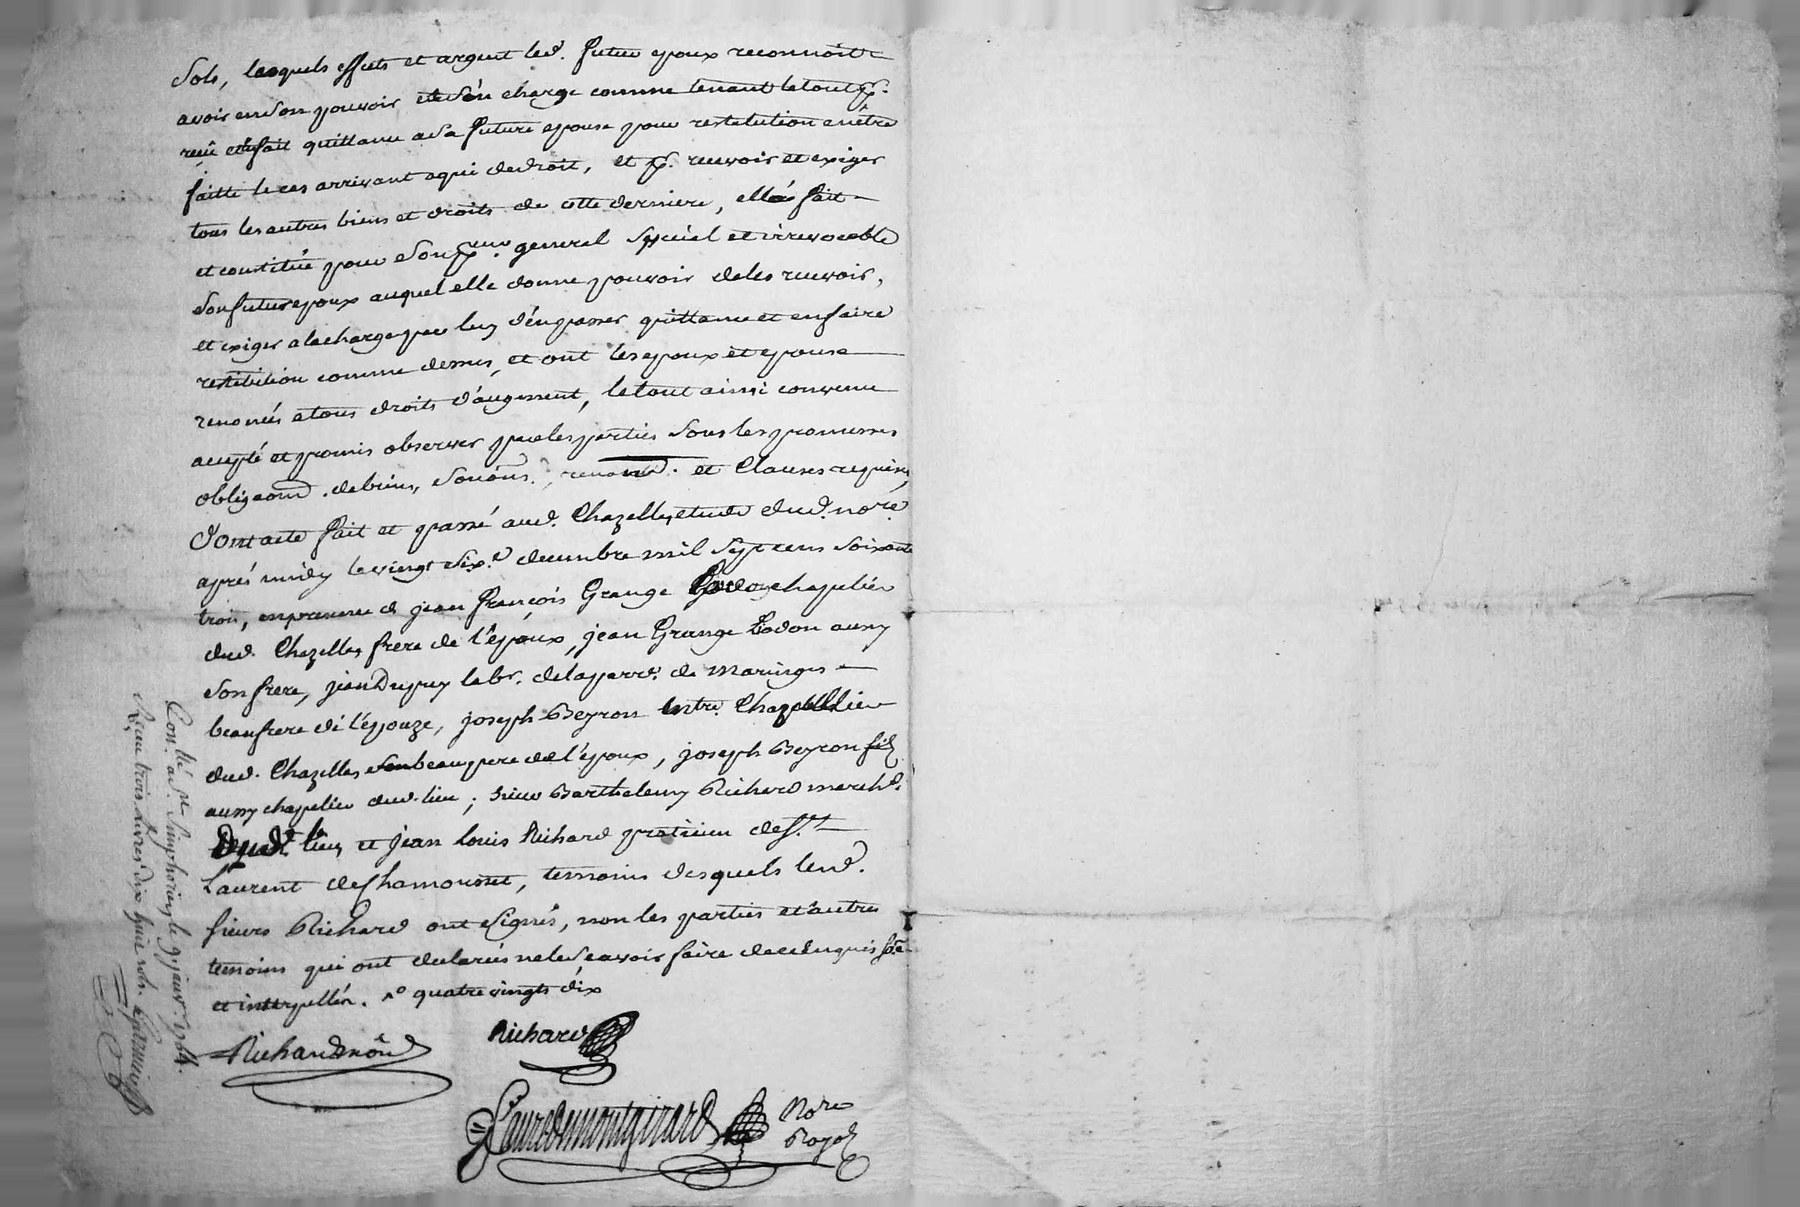 sols, lesquels effets et argent led. futur epoux reconnoit
avoir en son pouvoir et s'en charge comme tenant le tout pr.
reçû et en fait quittance a sa future epouse pour restitution en être
faitte le cas arrivant a qui de droit, et pr. recevoir et exiger
tous les autres biens et droits de cette derniere, elle a fait
et constitué pour son pr.eur general special et irrevocable
son futur epoux auquel elle donne pouvoir de les recevoir,
et exiger a la charge par luy d'en passer quittance et en faire
restitution comme dessus, et ont les epoux et epouse
renoncés a tous droits d'augment, le tout ainsi convenu
accepté et promis observer par les parties sous les promesses
obligaond. de biens, soûons., renond. et Clauses requises,
dont acte fait et passé aud. Chazelles etude dud. no.re
aprés midy le vingt six.e decembre mil sept cens soixante
trois, en presence de jean françois Grange chapelier
dud. Chazelles frere de l'époux, jean Grange Godon aussy
son frere, jean Dupuy labr. de la parr. de maringes
beaufrere de l'épouze, joseph Beyron Chapellier
dud. Chazelles beaupere de l'époux, joseph Beyron fils
aussy chapelier dud. lieu ; sieur Barthelemy Richard march.d
dud. lieu et jean Louis Richard praticien de s.t
Laurent de Chamousset, temoins desquels lesd.
sieurs Richard ont signés, non les parties et autres
temoins qui ont declarés ne le sçavoir faire de ce enquis
et interpellés. no quatre vingts dix
Richard
Richard
No.re
Royal
Con.llé a St Simphorien le 9 janv.r 1764.
Reçu trois livres dix huit sols.